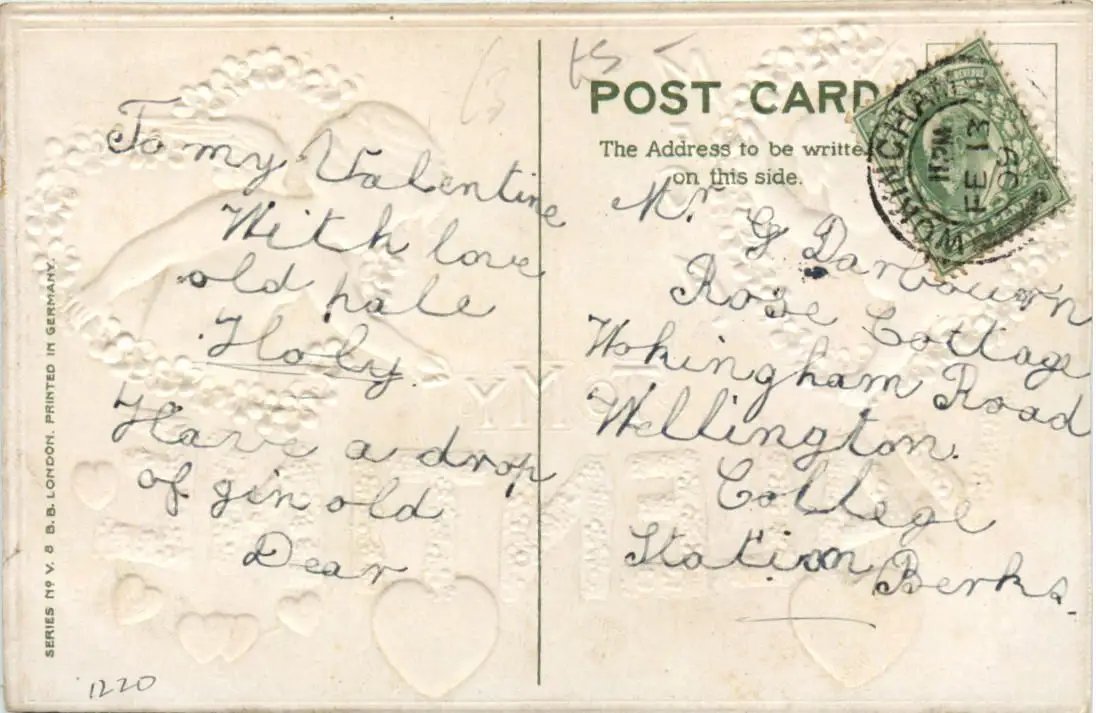 To my Valentine
With love
old pale
Holy.
Have a drop
of gin old
Dear
SERIES Nº V. 8 B.B. LONDON. PRINTED IN GERMANY.
1220
POST CARD
The Address to be writte
on this side.
WOKINGHAM
FE 13
09
Mr.
G Darbourn
Rose Cottage
Wokingham Road
Wellington.
College
Station Berks.
TO MY
VALENTINE